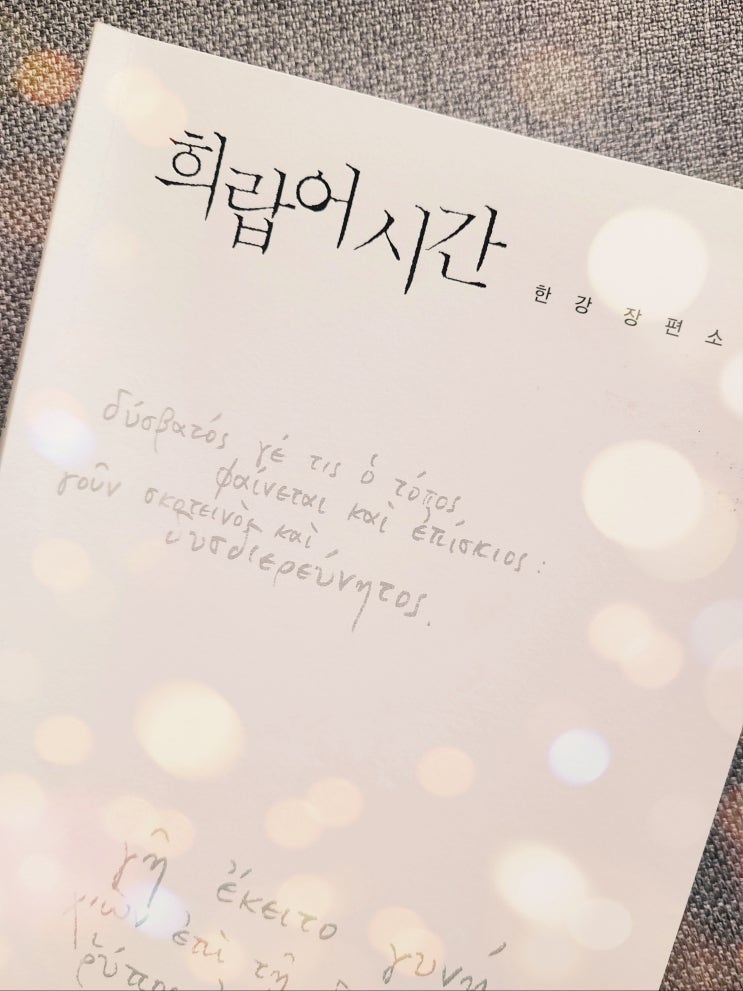 희랍어 시간
한 강 장 편 소
δύσβατός γέ τις ὁ τόπος
φαίνεται καὶ ἐπίσκιος :
γοῦν σκοτεινὸς καὶ
δυσδιερεύνητος.
γῆ ἔκειτο γυνή
ἐπὶ τῇ